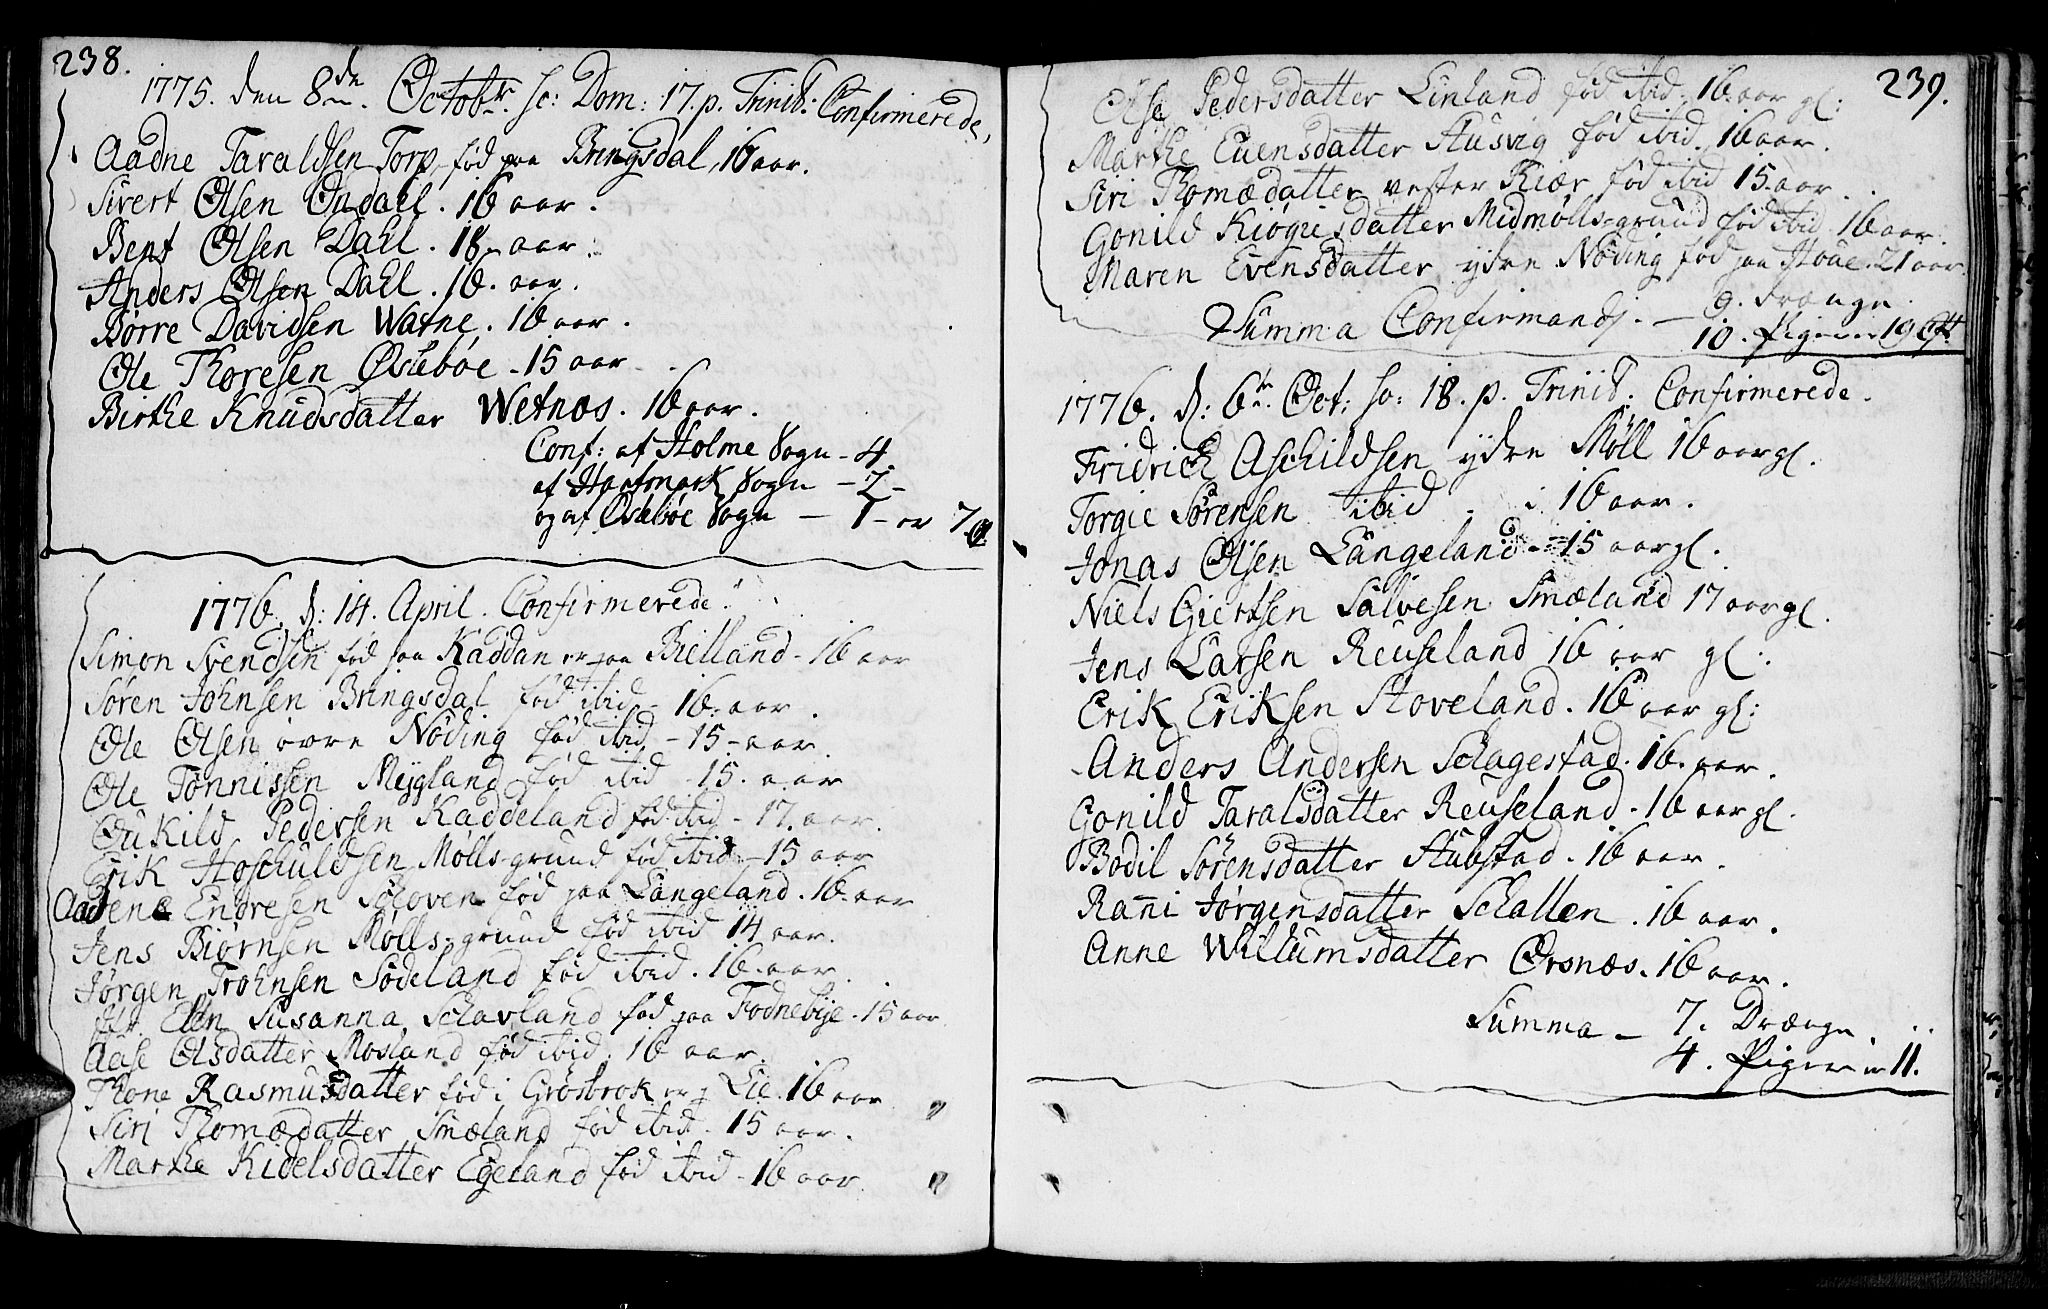 238.
1775. den 8de. Octobr. sc: Dom: 17. p. Trinit: Confirmerede,
Aadne Taraldsen Torp, fød paa Bringsdal, 16 aar.
Sivert Olsen Ondall. 16 aar.
Bent Olsen Dahl. 18. aar.
Anders Olsen Dahl. 16. aar.
Børre Davidsen Watne. 16 aar.
Ole Thoresen Øslebøe. 15 aar.
Birthe Knudsdatter Wetnæs. 16 aar.
Conf: af Holme Sogn - 4
af Haatmark Sogn - 2 -
og af Øslebøe Sogn - 1 - er 7.
1776. d: 14. April. Confirmerede.
Simon Svendsen fød paa Kaddan er paa Bielland - 16 aar
Søren Johnsen Bringsdal fød ibid - 16. aar.
Ole Olsen øvre Nøding fød ibid - 15 - aar.
Ole Tønnissen Mejgland fød ibid 15. aar
Oukild Pedersen Kaddeland fød ibid - 17. aar.
Erik Hoschuldsen Mølls-grund fød ibid - 15 aar
Aadene Endresen Schoven fød paa Langeland. 16. aar
Jens Biørnsen Mølls-grund fød ibid 14 aar.
Jørgen Trohnsen Sodeland fød ibid. 16. aar.
Jfr. Elen Susanna Schavland fød paa Fodnebye - 15 aar
Aase Olsdatter Mosland fød ibid. 16 aar.
Thone Rasmusdatter fød i Grosbrok er j Lie. 16 aar
Siri Thomædatter Smæland fød ibid. 15 aar.
Marthe Kidelsdatter Egeland fød ibid - 16 aar
239.
Else Pedersdatter Linland fød ibid. 16. aar gl:
Marthe Evensdatter Husvig fød ibid. 16 aar.
Siri Thomædatter vester Kiær fød ibid 15. aar.
Gonild Kiøgesdatter Midmølls-grund fød ibid 16 aar.
Maren Evensdatter ydre Nøding fød paa Houe. 21 aar.
Summa Confirmandj. - 9. Drænge.
10. Piger er 19
1776. d: 6te. Oct: sc: 18. p. Trinit. Confirmerede.
Fridrich Aschildsen ydre Møll 16 aar gl.
Torgie Sørensen ibid . 16 aar.
Jonas Olsen Langeland - 15 aar gl.
Niels Giertsen Salvesen Smæland 17 aar gl.
Jens Larsen Reuseland 16 aar gl:
Erik Eriksen Stoveland. 16 aar gl:
Anders Andersen Schagestad. 16. aar.
Gonild Taralsdatter Reuseland. 16 aar gl.
Bodil Sørensdatter Stubstad. 16 aar.
Rañi Jørgensdatter Schallen. 16 aar.
Anne Willumsdatter Orsnæs. 16 aar.
Summa - 7. Drænge.
4. Piger er 11.